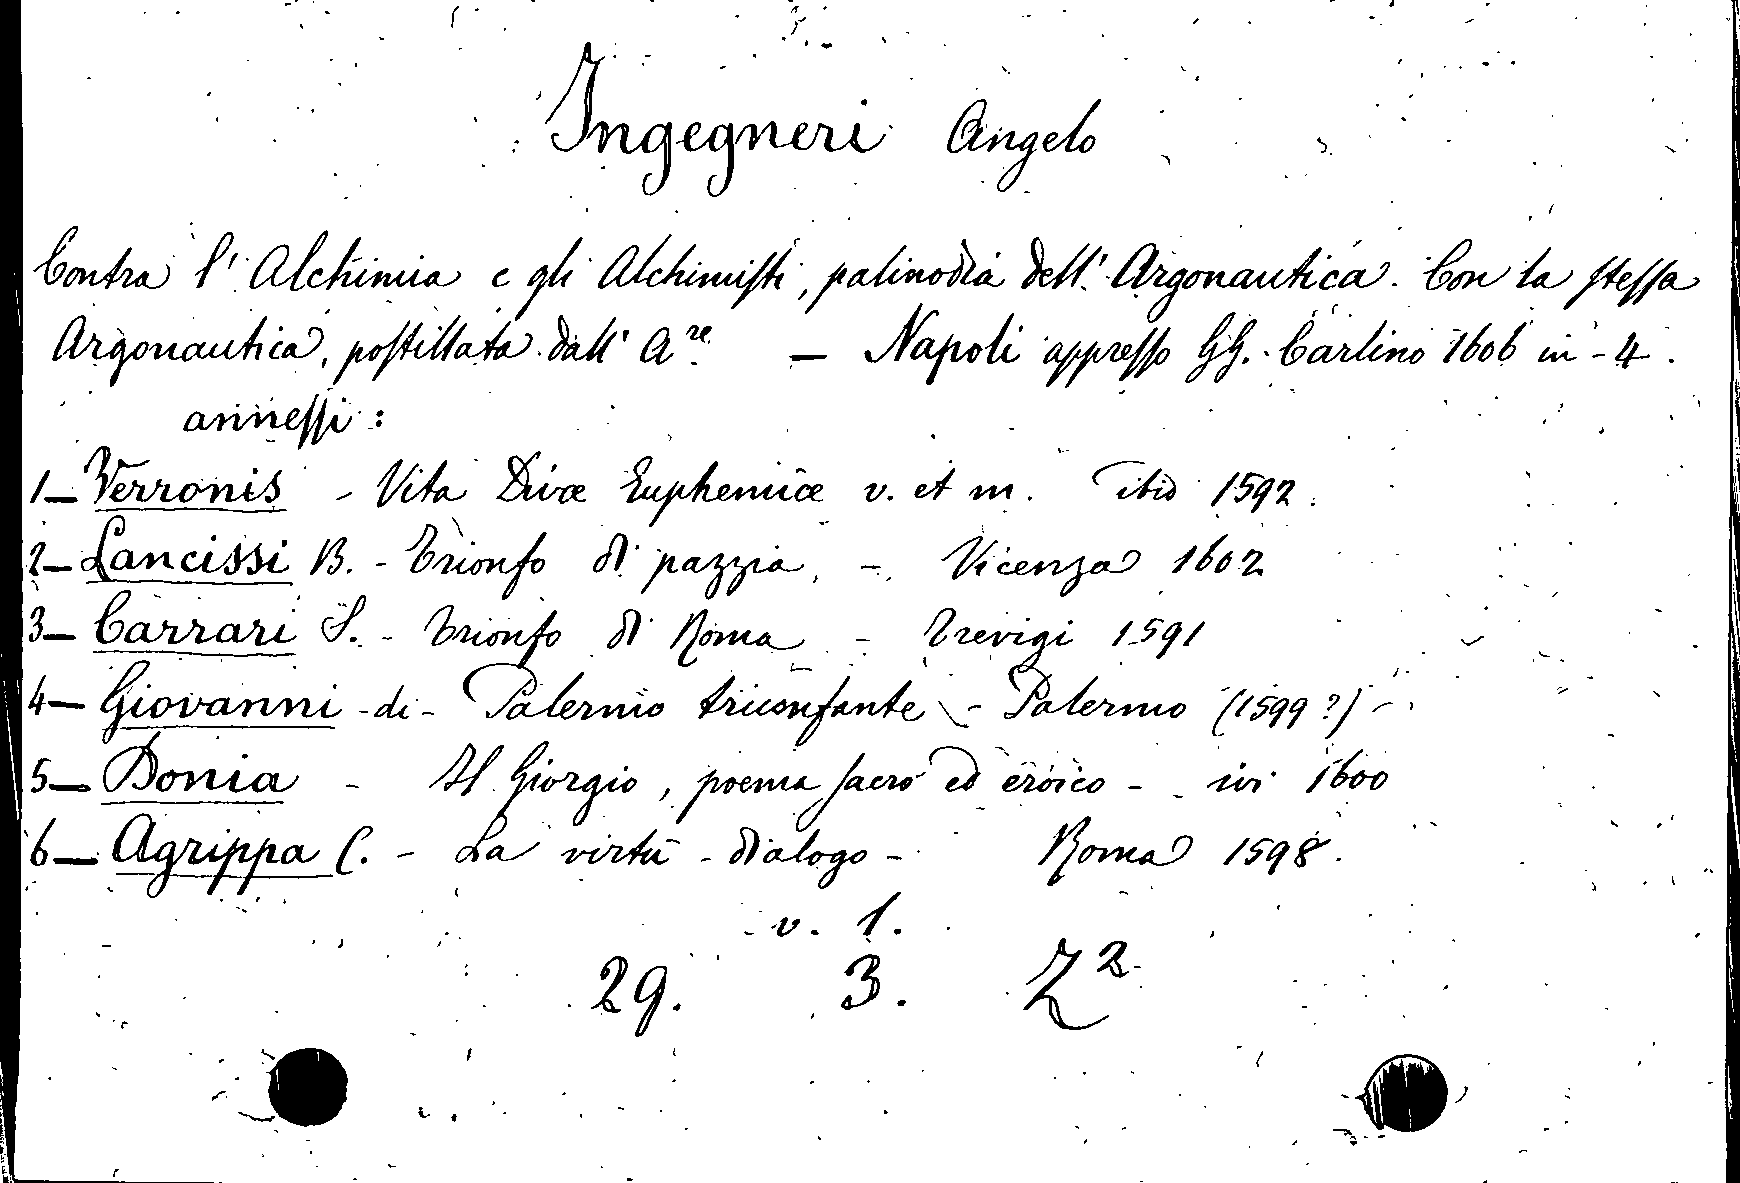 Ingegneri Angelo
Contra l'Alchimia e gli Alchimisti, palinodia dell'Argonautica. Con la stessa
Argonautica, postillata dall'A.re — Napoli appresso GG. Carlino 1606 in-4.
annessi:
1— Verronis - Vita Divæ Euphemiæ v. et m. ibid 1592.
2— Lancissi B. - Trionfo di pazzia, - Vicenza 1602
3— Carrari S. - Trionfo di Roma - Trevigi 1591
4— Giovanni -di- Palermo triunfante - Palermo (1599?) -
5— Donia - Il Giorgio, poema sacro ed eroico - ivi 1600
6— Agrippa C. - La virtù - dialogo - Roma 1598.
v. 1.
29. 3. Z2